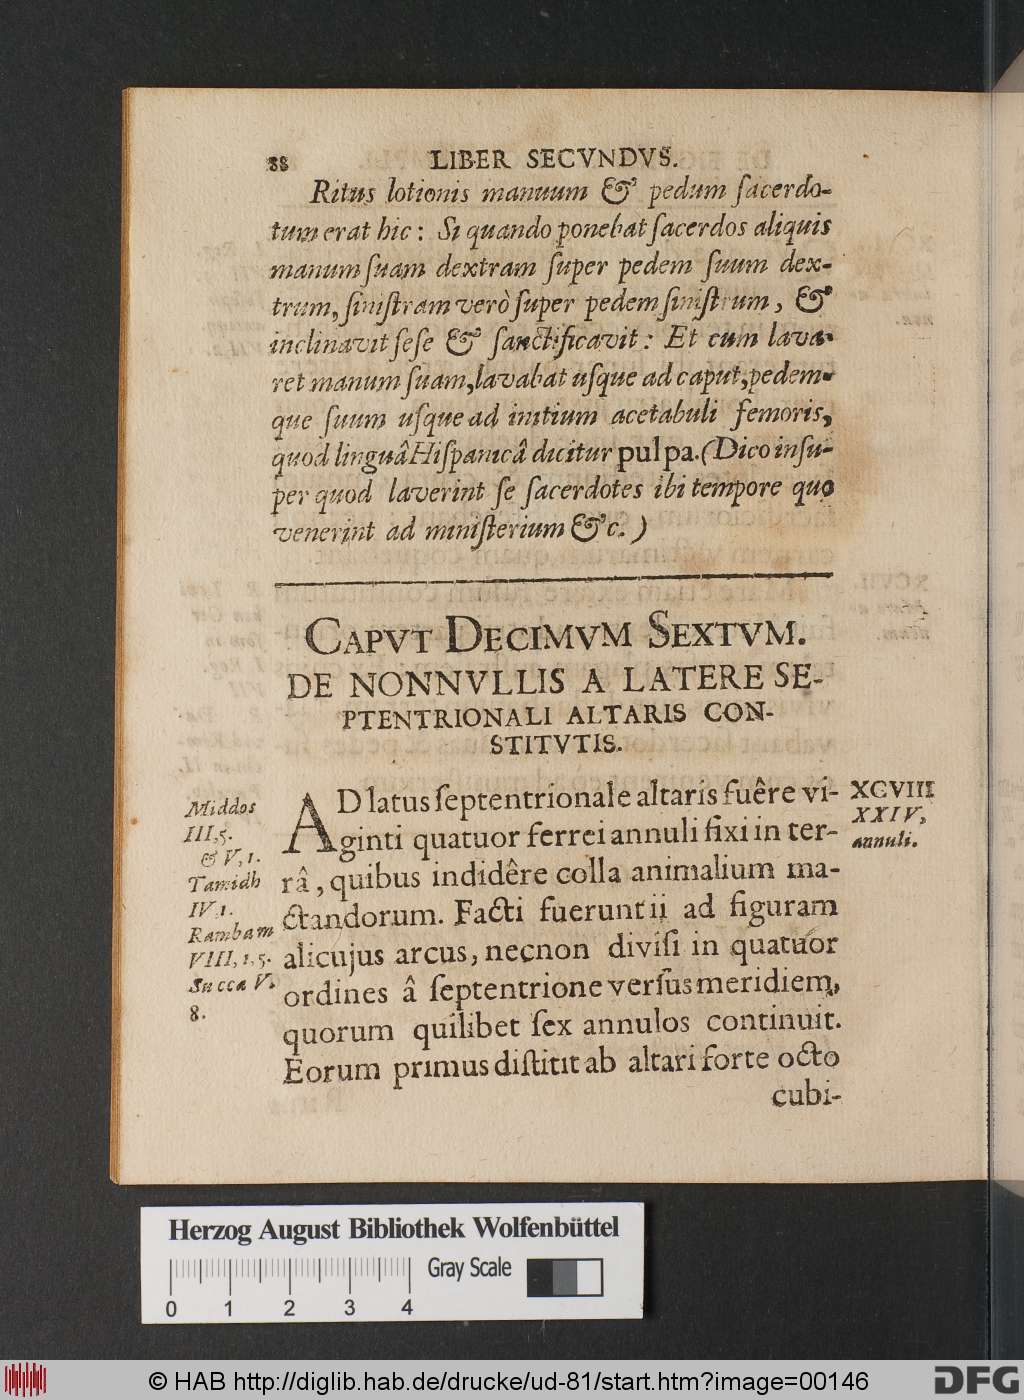 88 LIBER SECVNDVS.
Ritus lotionis manuum & pedum ſacerdo-
tum erat hic : Si quando ponebat ſacerdos aliquis
manum ſuam dextram ſuper pedem ſuum dex-
trum, ſiniſtram verò ſuper pedem ſiniſtrum, &
inclinavit ſeſe & ſanctificavit : Et cum lava-
ret manum ſuam, lavabat uſque ad caput, pedem-
que ſuum uſque ad initium acetabuli femoris,
quod linguâ Hiſpanicâ dicitur pulpa. (Dico inſu-
per quod laverint ſe ſacerdotes ibi tempore quo
venerint ad miniſterium &c. )
CAPVT DECIMVM SEXTVM.
DE NONNVLLIS A LATERE SE-
PTENTRIONALI ALTARIS CON-
STITVTIS.
AD latus ſeptentrionale altaris fuêre vi-
ginti quatuor ferrei annuli fixi in ter-
râ, quibus indidêre colla animalium ma-
ctandorum. Facti fuerunt ii ad figuram
alicujus arcus, necnon diviſi in quatuor
ordines â ſeptentrione verſus meridiem,
quorum quilibet ſex annulos continuit.
Eorum primus diſtitit ab altari forte octo
cubi-
Middos
III, 5.
& V, 1.
Tamidh
IV, 1.
Rambam
VIII, 1, 5.
Succa V.
8.
XCVIII
XXIV,
annuli.
Herzog August Bibliothek Wolfenbüttel
Gray Scale
0 1 2 3 4
© HAB http://diglib.hab.de/drucke/ud-81/start.htm?image=00146
DFG